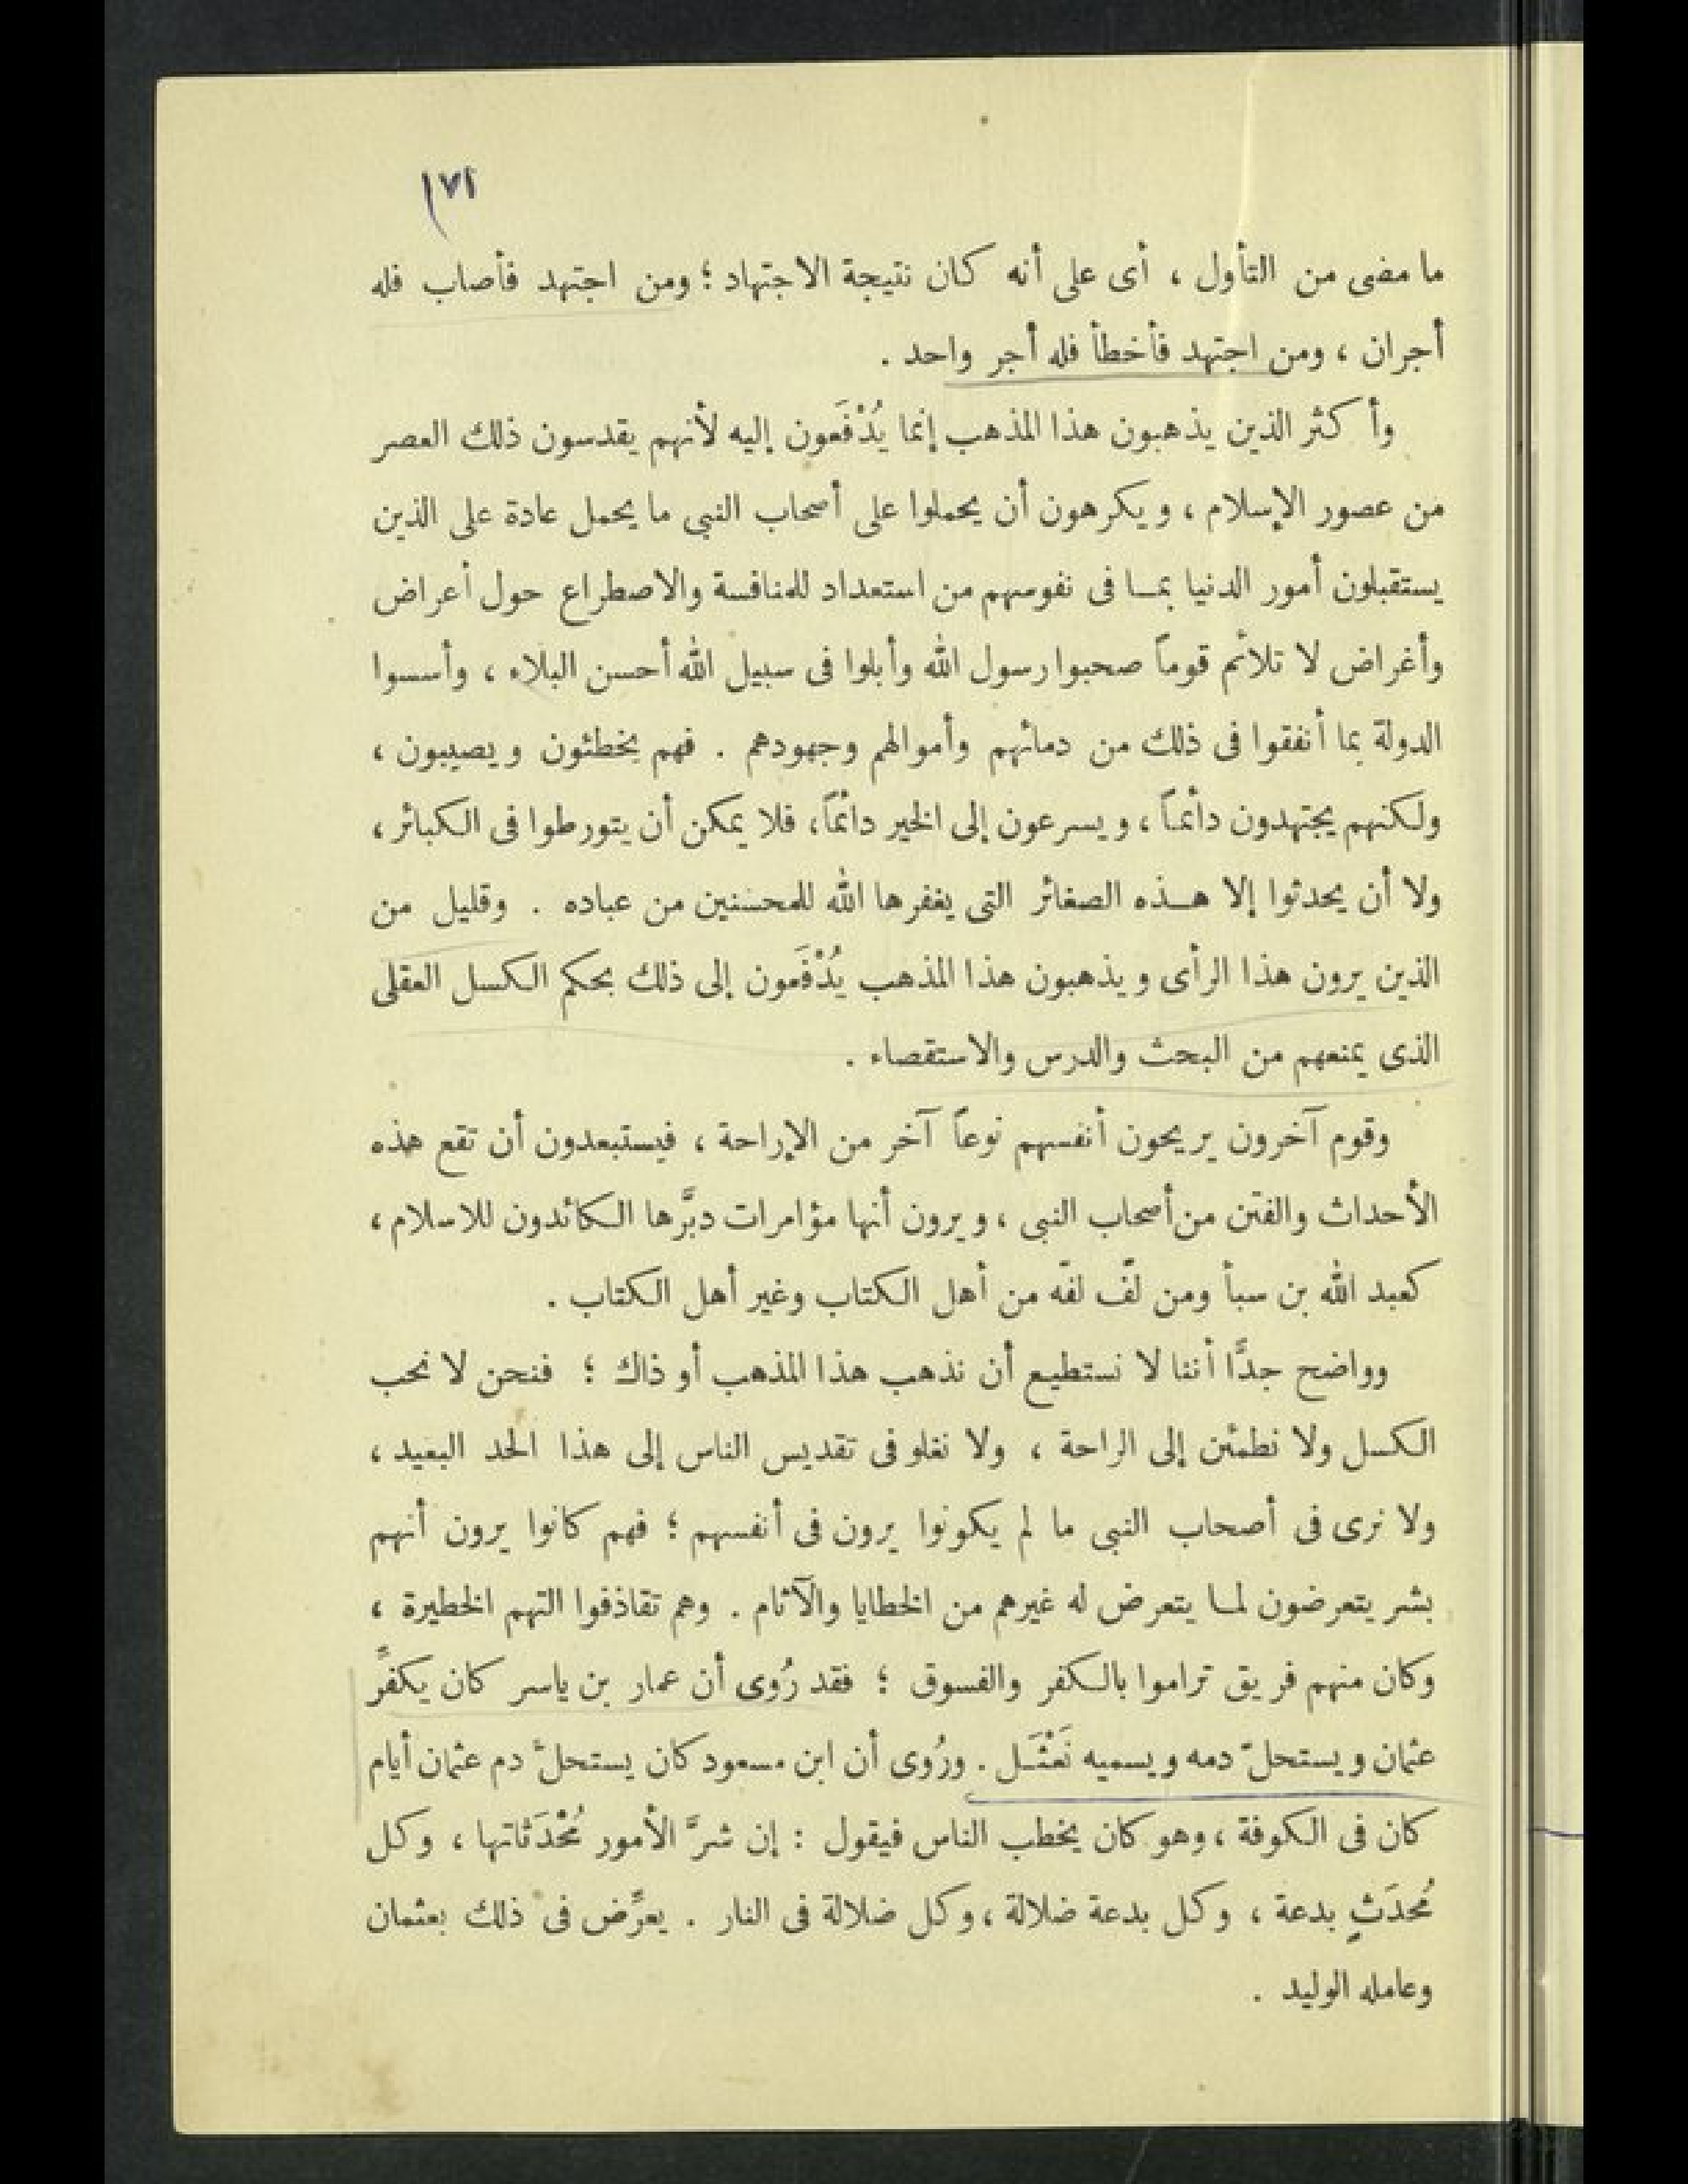 ١٧١
ما مضى من التأول ، أى على أنه كان نتيجة الاجتهاد ؛ ومن اجتهد فأصاب فله
أجران ، ومن اجتهد فأخطأ فله أجر واحد .
وأكثر الذين يذهبون هذا المذهب إنما يُدْفَعون إليه لأنهم يقدسون ذلك العصر
من عصور الإسلام ، ويكرهون أن يحملوا على أصحاب النبى ما يحمل عادة على الذين
يستقبلون أمور الدنيا بمـا فى نفوسهم من استعداد للمنافسة والاصطراع حول أعراض
وأغراض لا تلائم قوماً صحبوا رسول الله وأبلوا فى سبيل الله أحسن البلاء ، وأسسوا
الدولة بما أنفقوا فى ذلك من دمائهم وأموالهم وجهودهم . فهم يخطئون ويصيبون ،
ولكنهم يجتهدون دائماً ، ويسرعون إلى الخير دائماً ، فلا يمكن أن يتورطوا فى الكبائر ،
ولا أن يحدثوا إلا هـذه الصغائر التى يغفرها الله للمحسنين من عباده . وقليل من
الذين يرون هذا الرأى ويذهبون هذا المذهب يُدْفَعون إلى ذلك بحكم الكسل العقلى
الذى يمنعهم من البحث والدرس والاستقصاء .
وقوم آخرون يريحون أنفسهم نوعاً آخر من الإراحة ، فيستبعدون أن تقع هذه
الأحداث والفتن من أصحاب النبى ، ويرون أنها مؤامرات دبَّرها الكائدون للاسلام ،
كعبد الله بن سبأ ومن لفّ لفّه من أهل الكتاب وغير أهل الكتاب .
وواضح جدًّا أننا لا نستطيع أن نذهب هذا المذهب أو ذاك ؛ فنحن لا نحب
الكسل ولا نطمئن إلى الراحة ، ولا نغلو فى تقديس الناس إلى هذا الحد البعيد ،
ولا نرى فى أصحاب النبى ما لم يكونوا يرون فى أنفسهم ؛ فهم كانوا يرون أنهم
بشر يتعرضون لمـا يتعرض له غيرهم من الخطايا والآثام . وهم تقاذفوا التهم الخطيرة ،
وكان منهم فريق تراموا بالكفر والفسوق ؛ فقد رُوى أن عمار بن ياسر كان يكفِّر
عثمان ويستحلّ دمه ويسميه نَعْثَـل . ورُوى أن ابن مسعود كان يستحلّ دم عثمان أيام
كان فى الكوفة ، وهو كان يخطب الناس فيقول : إن شرَّ الأمور مُحْدَثاتها ، وكل
مُحدَثٍ بدعة ، وكل بدعة ضلالة ، وكل ضلالة فى النار . يعرِّض فى ذلك بعثمان
وعامله الوليد .